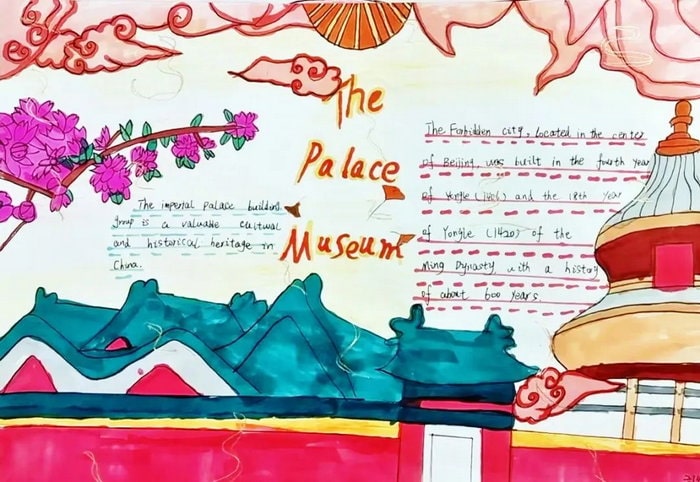 The
Palace
Museum
The imperial palace building
group is a valuable cultural
and historical heritage in
China.
The Forbidden city, located in the center
of Beijing, was built in the fourth year
of Yongle (1406) and the 18th year
of Yongle (1420) of the
Ming Dynasty with a history
of about 600 years